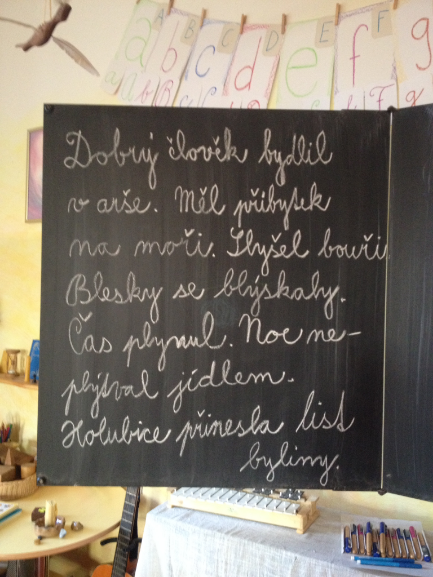 A
a b c B c C d D e E f F g
Dobrý člověk bydlil
v arše. Měl příbytek
na moři. Slyšel bouři
Blesky se blýskaly.
Čas plynul. Noe ne-
plýtval jídlem.
Holubice přinesla list
byliny.